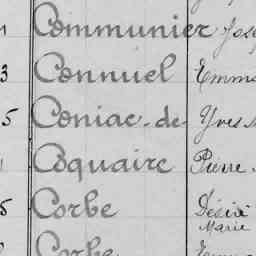 Communier Jos
3 Connuel Emma
5 Coniac-de- Yves
Coquaire Pierre
Corbe Désiré
Marie
Corbe